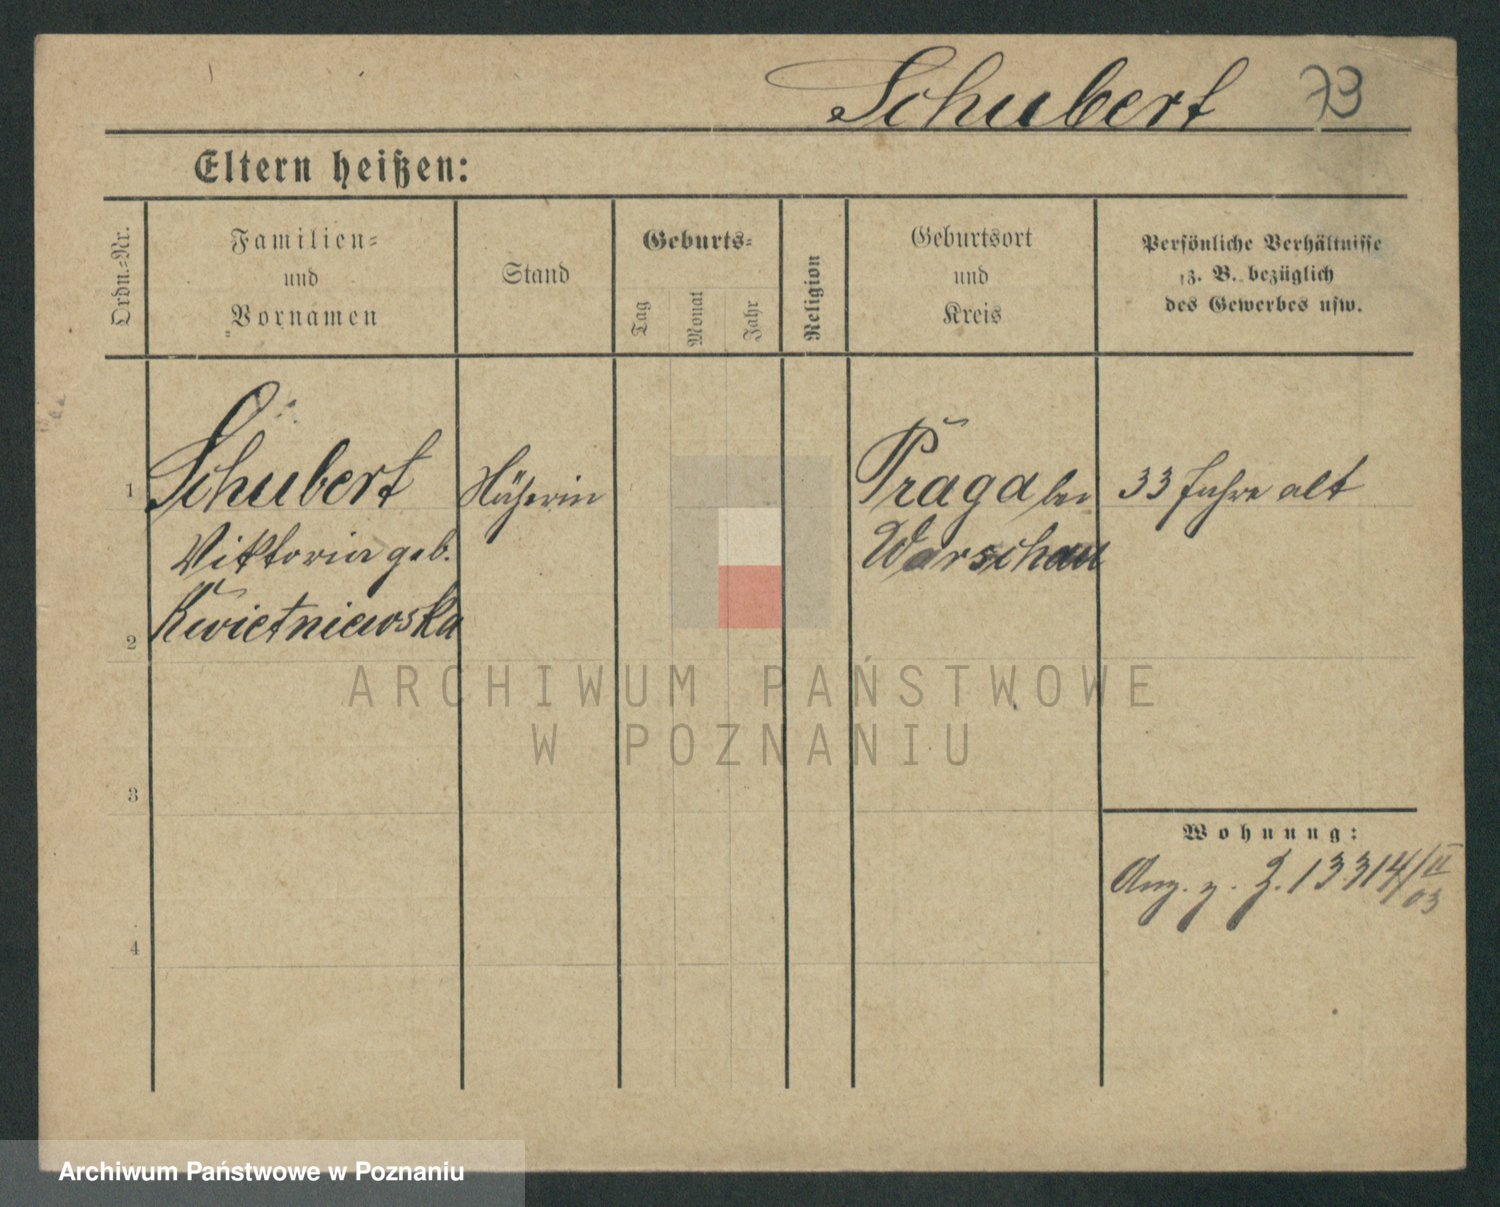 Schubert 73
Eltern heißen:
Ordn.-Nr.
Familien-
und
Vornamen
Stand
Geburts-
Tag
Monat
Jahr
Religion
Geburtsort
und
Kreis
Persönliche Verhältnisse
z. B. bezüglich
des Gewerbes usw.
1 Schubert Näherin Praga bei 33 Jahre alt
Viktoria geb. Warschau
2 Kwietniewska
ARCHIWUM PAŃSTWOWE
W POZNANIU
3
Wohnung:
Ang. z. Z. 13314/II
03
4
Archiwum Państwowe w Poznaniu